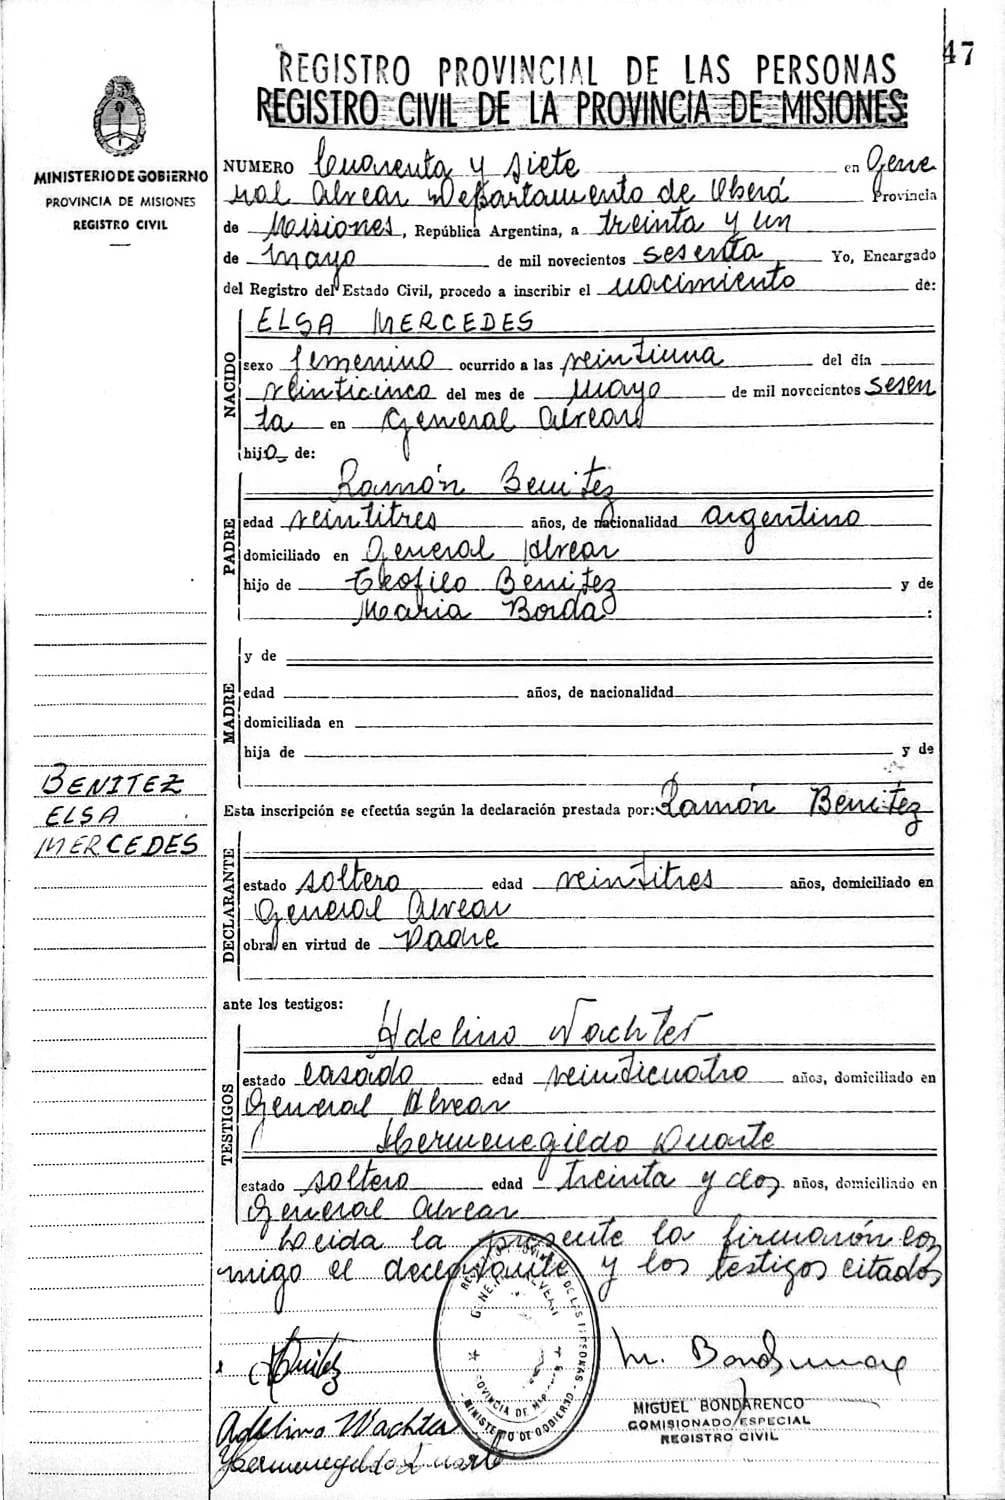 47
REGISTRO PROVINCIAL DE LAS PERSONAS
REGISTRO CIVIL DE LA PROVINCIA DE MISIONES
MINISTERIO DE GOBIERNO
PROVINCIA DE MISIONES
REGISTRO CIVIL
NUMERO Cuarenta y siete en Gene
ral Alvear Departamento de Oberá Provincia
de Misiones, República Argentina, a treinta y un
de mayo de mil novecientos sesenta Yo, Encargado
del Registro del Estado Civil, procedo a inscribir el nacimiento de:
NACIDO
ELSA MERCEDES
sexo femenino ocurrido a las veintiuna del día
veinticinco del mes de mayo de mil novecientos sesen
ta en General Alvear
hija de:
PADRE
Ramón Benitez
edad veintitres años, de nacionalidad argentino
domiciliado en General Alvear
hijo de Teofilo Benitez y de
Maria Borda :
MADRE
y de
edad años, de nacionalidad
domiciliada en
hija de y de
BENITEZ
ELSA
MERCEDES
Esta inscripción se efectúa según la declaración prestada por: Ramón Benitez
DECLARANTE
estado soltero edad veintitres años, domiciliado en
General Alvear
obra en virtud de Padre
ante los testigos:
TESTIGOS
Adelino Wachter
estado casado edad veinticuatro años, domiciliado en
General Alvear
Hermenegildo Duarte
estado soltero edad treinta y dos años, domiciliado en
General Alvear
Leida la presente la firmarón con
migo el declarante y los testigos citados
REGISTRO PROVINCIAL DE LAS PERSONAS
GENERAL ALVEAR
PROVINCIA DE MISIONES
MINISTERIO DE GOBIERNO
Benitez
M. Bondarenco
MIGUEL BONDARENCO
COMISIONADO ESPECIAL
REGISTRO CIVIL
Adelino Wachter
Hermenegildo Duarte